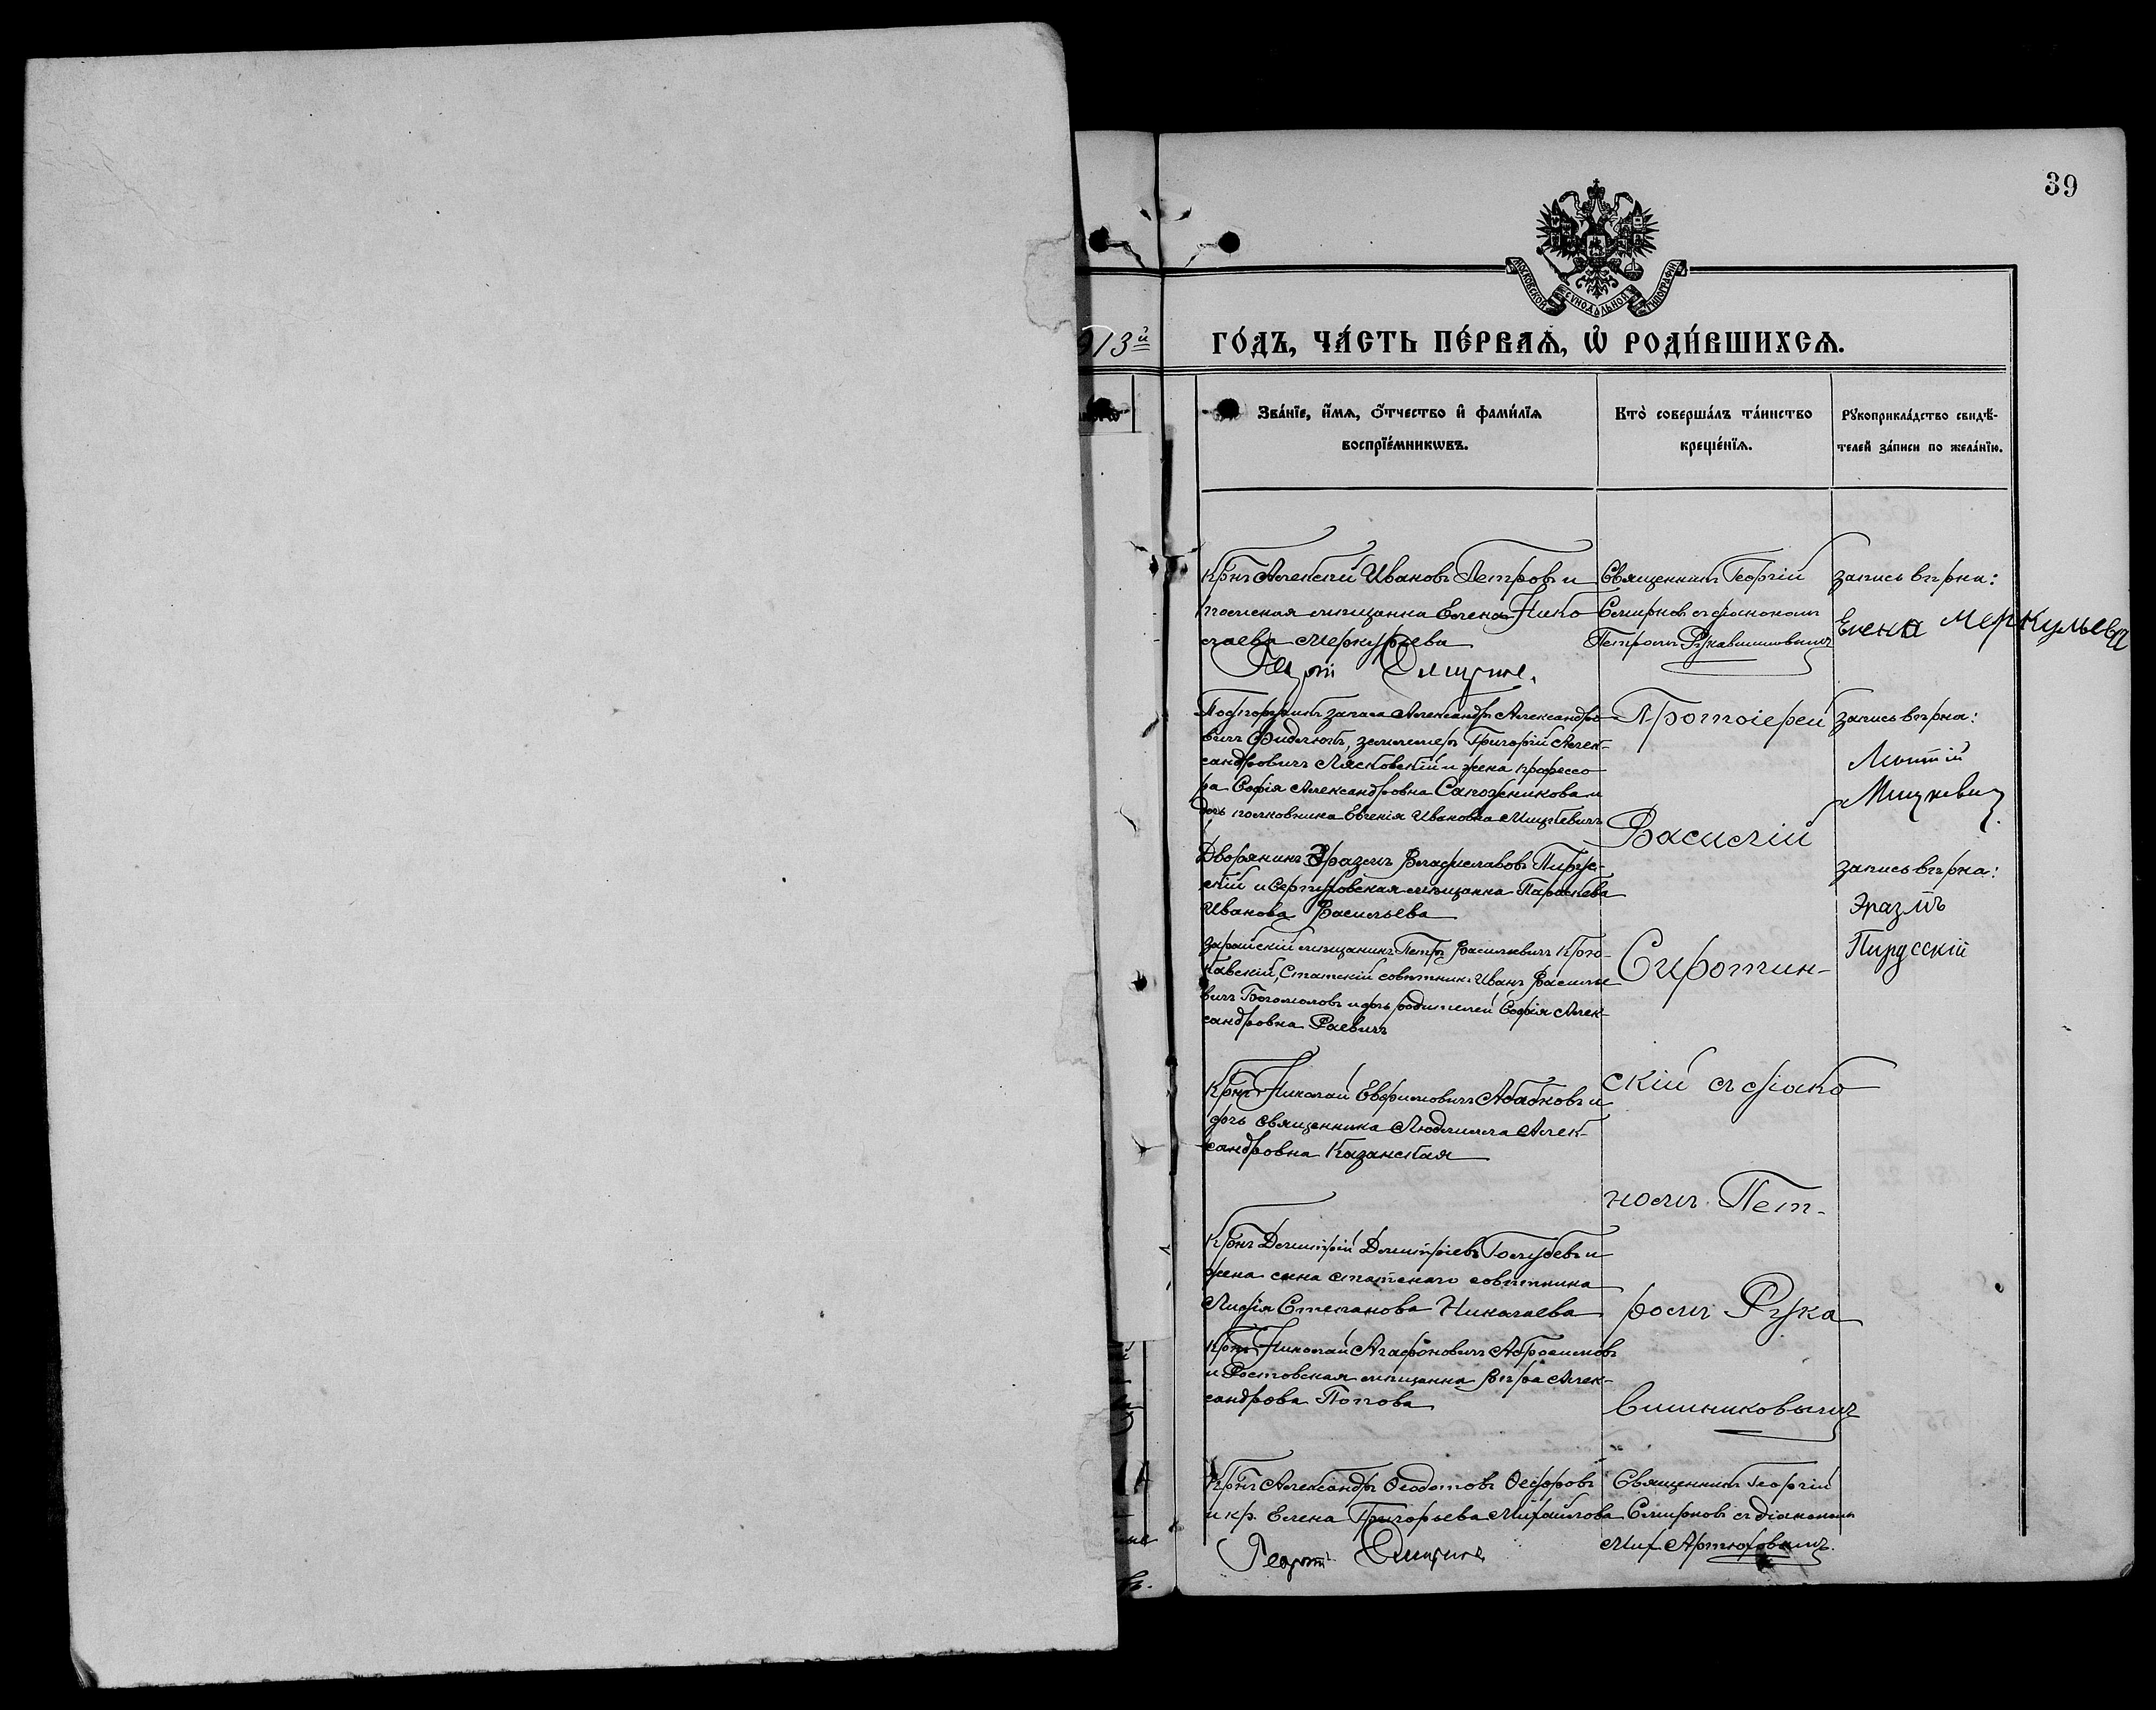 39
МОСКОВСКОЙ СѴНОДАЛЬНОЙ ТИПОГРАФІИ
913й
ГО́ДЪ, ЧА́СТЬ ПЕ́РВАѦ, Ѡ҆ РОДИ́ВШИХСѦ.
Зва́нїе, и҆́мѧ, ѻ҆́тчество и҆ фами́лїѧ
воспрїе́мникѡвъ.
Кто̀ соверша́лъ та́инство
креще́нїѧ.
Рꙋкоприкла́дство свидѣ́-
телей за́писи по жела́нїю.
Крнъ Алексѣй Ивановъ Петровъ и
мѣщанка Елена Нико
лаева Меркурьева
Георгій Смирновъ
Священникъ Георгій
Смирновъ съ діакономъ
Петромъ Рукавишниковымъ
запись вѣрна:
Елена Меркульева
Подпоручикъ запаса Александръ Александро
вичъ землемеръ Григорій Алек-
сандровичъ Лясковскій и жена профессо
ра Софія Александровна Сапожникова и
дочь полковника Евгенія Ивановна Мицкевичъ
запись вѣрна:
Мицкевичъ
Дворянинъ Эразмъ Владиславовъ Пирус-
скій и Серпуховская мѣщанка Параскева
Иванова Васильева
запись вѣрна:
Эразмъ
Пирусскій
Зарайскій мѣщанинъ Петръ Васильевичъ Крю-
ковскій, Статскій совѣтникъ Иванъ Василье
вичъ Богомоловъ и дочь родителей Софія Алек-
сандровна Раевичъ
Крнъ Николай Ефримовичъ Абабковъ и
дочь священника Людмилла Алек-
сандровна Казанская
Крнъ Димитрій Димитріевъ Голубевъ и
жена сына статскаго совѣтника
Лидія Степанова Николаева
Крнъ Николай Агафоновичъ Абросимовъ
и Ростовская мѣщанка Вѣра Алек-
сандрова Попова
Протоіерей
Василій
Сиротин-
скій съ діако
номъ Пет-
ромъ Рука
вишниковымъ
Крнъ Александръ Ѳеодотовъ Ѳедоровъ
и кр. Елена Григорьева Михайлова
Георгій Смирновъ
Священникъ Георгій
Смирновъ съ діакономъ
Мих. Артюховымъ.